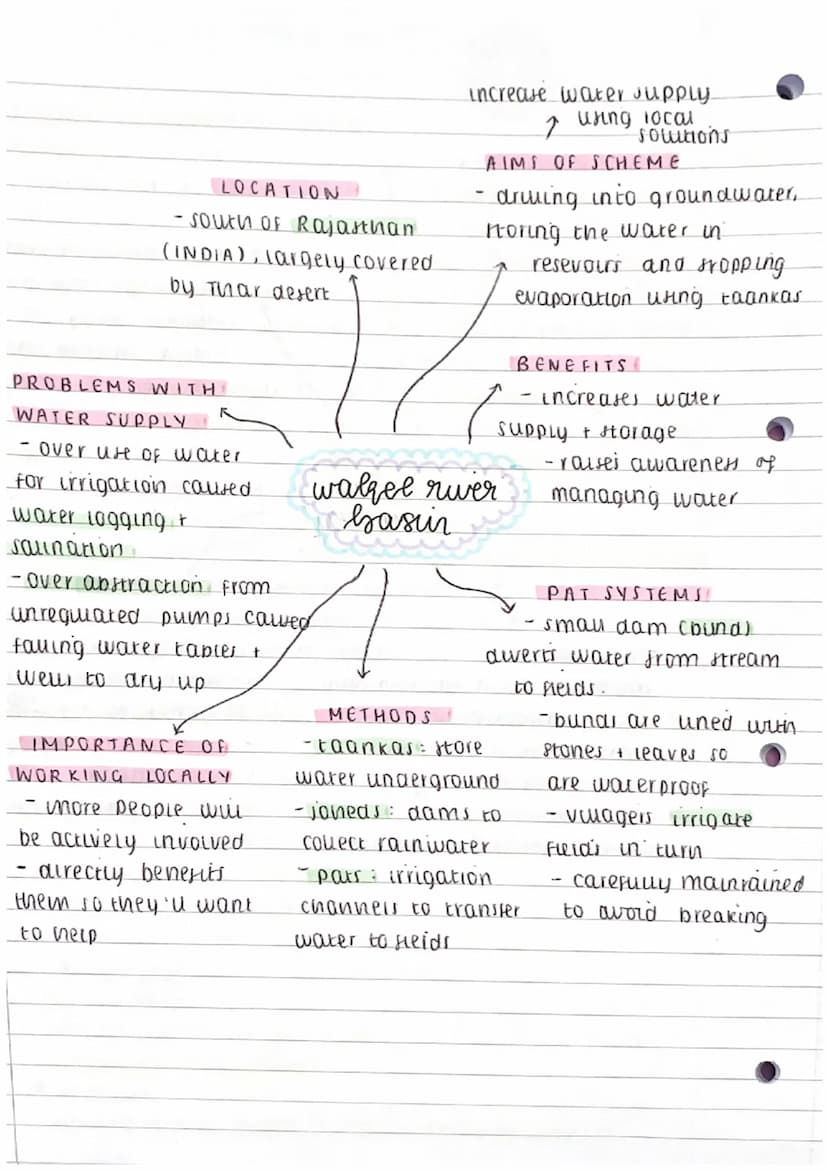 increase water supply
using local
solutions
AIMS OF SCHEME
- drilling into groundwater,
storing the water in
resevoirs and stopping
evaporation using taankas
LOCATION
- South of Rajasthan
(INDIA), largely covered
by Thar desert
BENEFITS
- increases water
supply + storage
- raises awareness of
managing water
PROBLEMS WITH
WATER SUPPLY
- over use of water
for irrigation caused
water logging +
salination
- over abstraction from
unregulated pumps caused
falling water tables +
wells to dry up
walgel river
basin
PAT SYSTEMS
- small dam (bund)
diverts water from stream
to fields.
- bunds are lined with
stones + leaves so
are waterproof
- villagers irrigate
fields in turn
- carefully maintained
to avoid breaking
METHODS
- taankas: store
water underground
- joheds: dams to
collect rainwater
- pats: irrigation
channels to transfer
water to fields
IMPORTANCE OF
WORKING LOCALLY
- more people will
be actively involved
- directly benefits
them so they'll want
to help